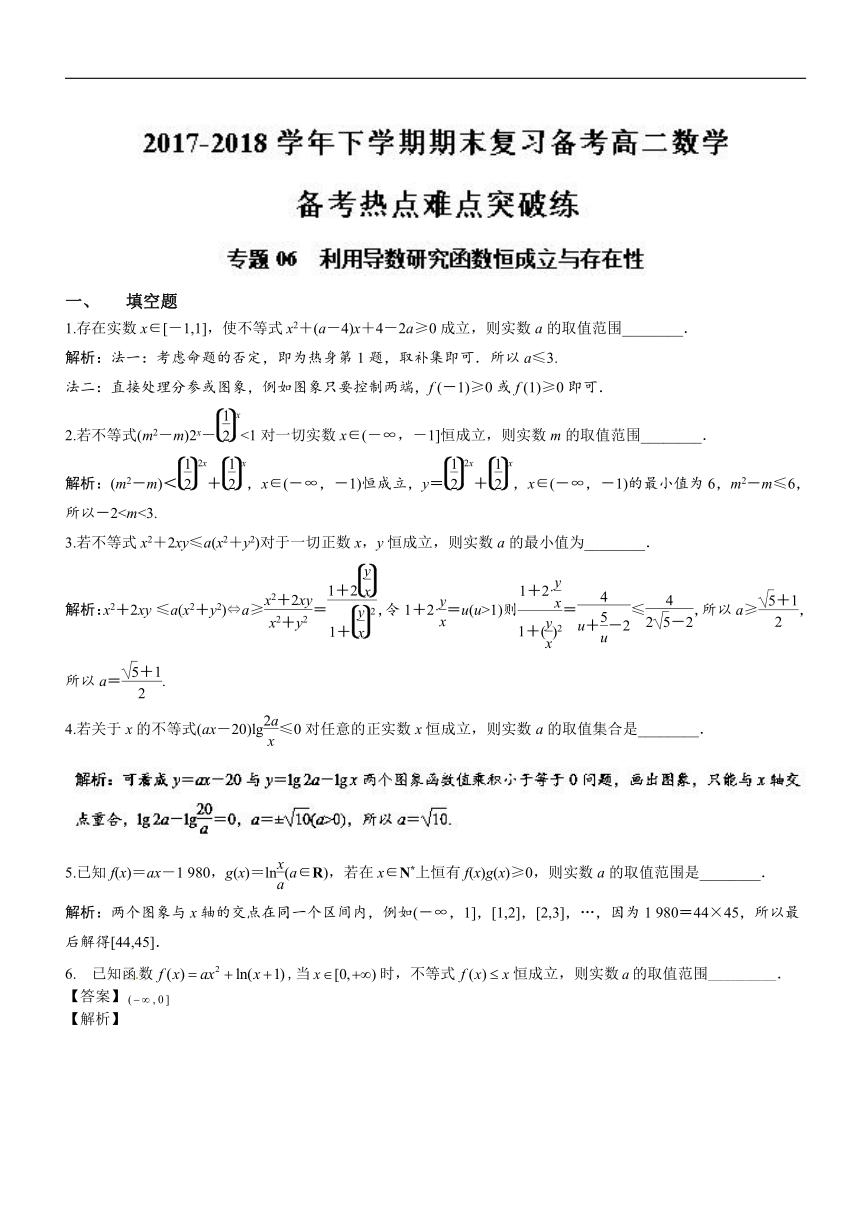 2017-2018 学年下学期期末复习备考高二数学
备考热点难点突破练
专题 06 利用导数研究函数恒成立与存在性
一、 填空题
1.存在实数 x∈[－1,1]，使不等式 x²＋(a－4)x＋4－2a≥0 成立，则实数 a 的取值范围________．
解析：法一：考虑命题的否定，即为热身第 1 题，取补集即可．所以 a≤3.
法二：直接处理分参或图象，例如图象只要控制两端，f (－1)≥0 或 f (1)≥0 即可．
2.若不等式(m²－m)2ˣ－(1/2)ˣ<1 对一切实数 x∈(－∞，－1]恒成立，则实数 m 的取值范围________．
解析：(m²－m)＜(1/2)²ˣ＋(1/2)ˣ，x∈(－∞，－1)恒成立，y＝(1/2)²ˣ＋(1/2)ˣ，x∈(－∞，－1)的最小值为 6，m²－m≤6，
所以－2<m<3.
3.若不等式 x²＋2xy≤a(x²＋y²)对于一切正数 x，y 恒成立，则实数 a 的最小值为________．
解析:x²＋2xy ≤a(x²＋y²)⇔a≥(x²＋2xy)/(x²＋y²)＝(1＋2(y/x))/(1＋(y/x)²)，令 1＋2·y/x＝u(u>1)则(1＋2·y/x)/(1＋(y/x)²)＝4/(u＋5/u－2)≤4/(2√5－2)，所以 a≥(√5＋1)/2，
所以 a＝(√5＋1)/2.
4.若关于 x 的不等式(ax－20)lg(2a/x)≤0 对任意的正实数 x 恒成立，则实数 a 的取值集合是________．
解析：可看成 y＝ax－20 与 y＝lg 2a－lg x 两个图象函数值乘积小于等于 0 问题，画出图象，只能与 x 轴交
点重合，lg 2a－lg(20/a)＝0，a＝±√10(a>0)，所以 a＝√10.
5.已知 f(x)＝ax－1 980，g(x)＝ln(x/a)(a∈R)，若在 x∈N*上恒有 f(x)g(x)≥0，则实数 a 的取值范围是________．
解析：两个图象与 x 轴的交点在同一个区间内，例如(－∞，1]，[1,2]，[2,3]，…，因为 1 980＝44×45，所以最
后解得[44,45]．
6. 已知函数 f(x)=ax²+ln(x+1)，当 x∈[0,+∞) 时，不等式 f(x)≤x 恒成立，则实数 a 的取值范围________．
【答案】(−∞,0]
【解析】